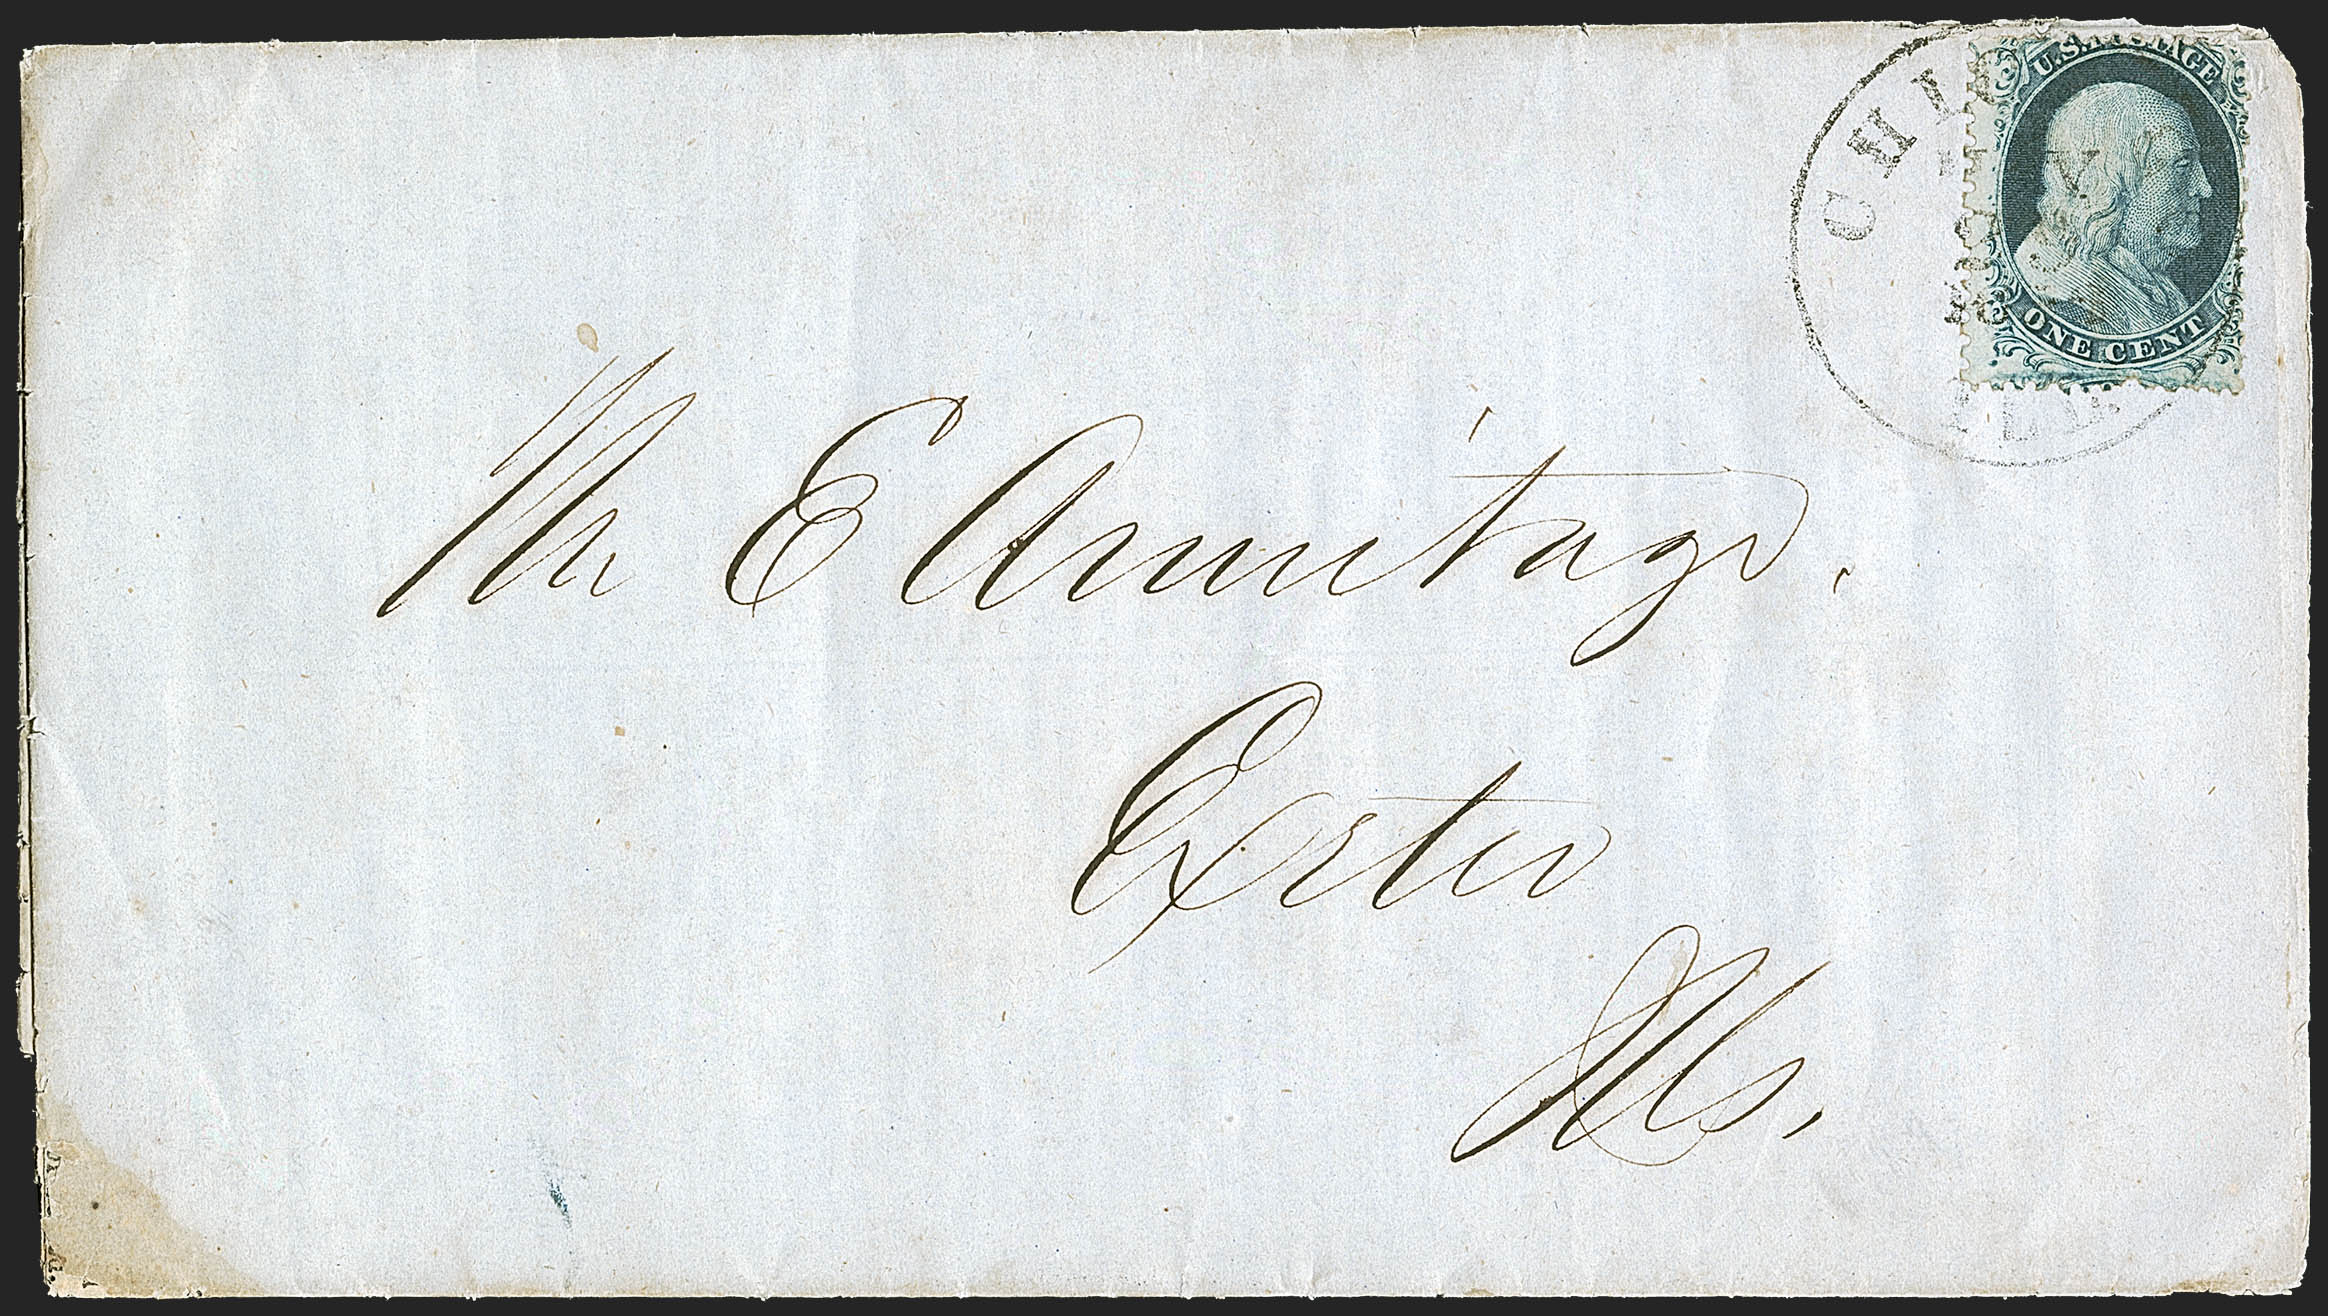 U.S. POSTAGE
ONE CENT
CHI
ILL
Mr E Armitage.
Exeter
Ills.